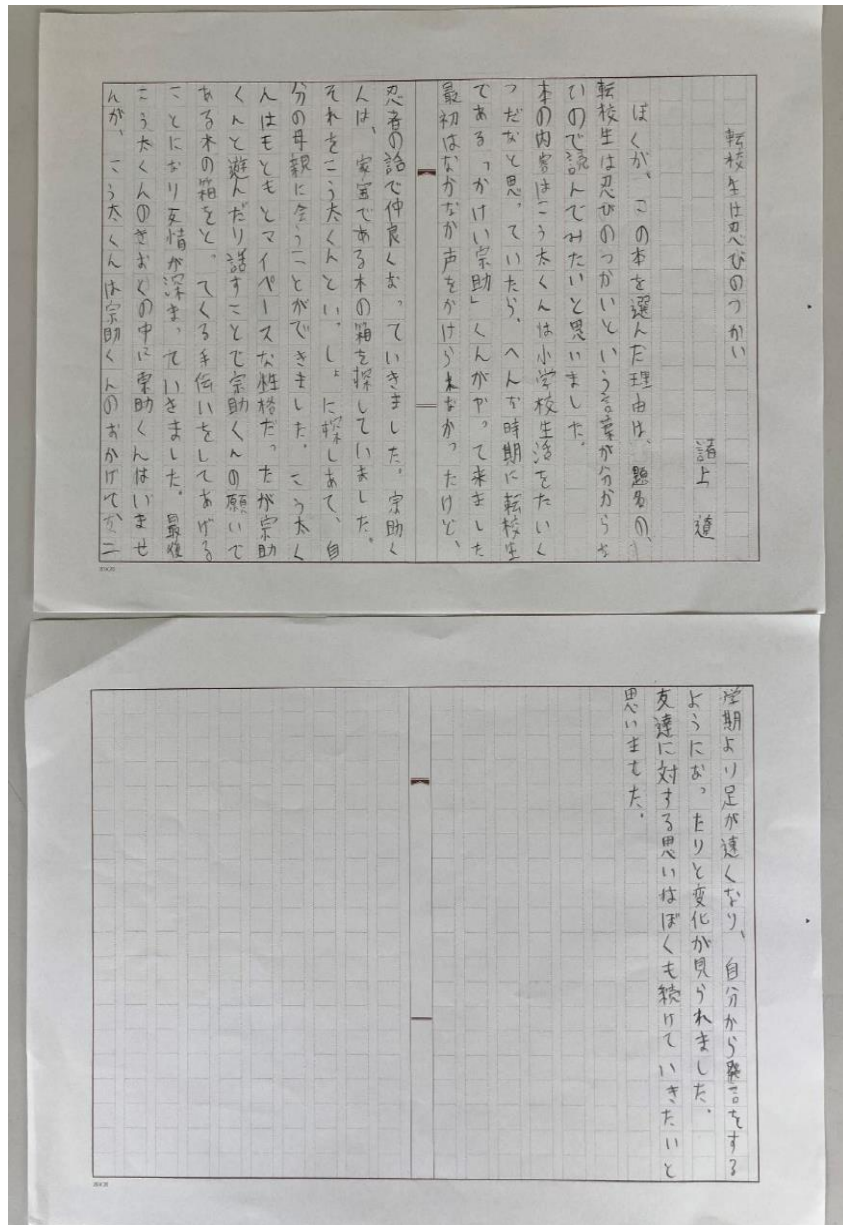 転校生は忍びのつかい
諸上
ぼくが、この本を選んだ理由は、題名の、
転校生は忍びのつかいという言葉が分からな
いので読んでみたいと思いました。
本の内容はこう太くんは小学校生活をたいく
つだなと思っていたら、へんな時期に転校生
である「かけい宗助」くんがやって来ました
最初はなかなか声をかけられなかったけど、
忍者の話で仲良くなっていきました。宗助く
んは、家宝である木の箱を探していました。
それをこう太くんといっしょに探しあて、自
分の母親に会うことができました。こう太く
んはもともとマイペースな性格だったが宗助
くんと遊んだり話すことで宗助くんの願いで
ある木の箱をとってくる手伝いをしてあげる
ことになり友情が深まっていきました。最後
こう太くんのきおくの中に宗助くんはいませ
んが、こう太くんは宗助くんのおかげで二
学期より足が速くなり、自分から発言をする
ようになったりと変化が見られました。
友達に対する思いはぼくも続けていきたいと
思いました。